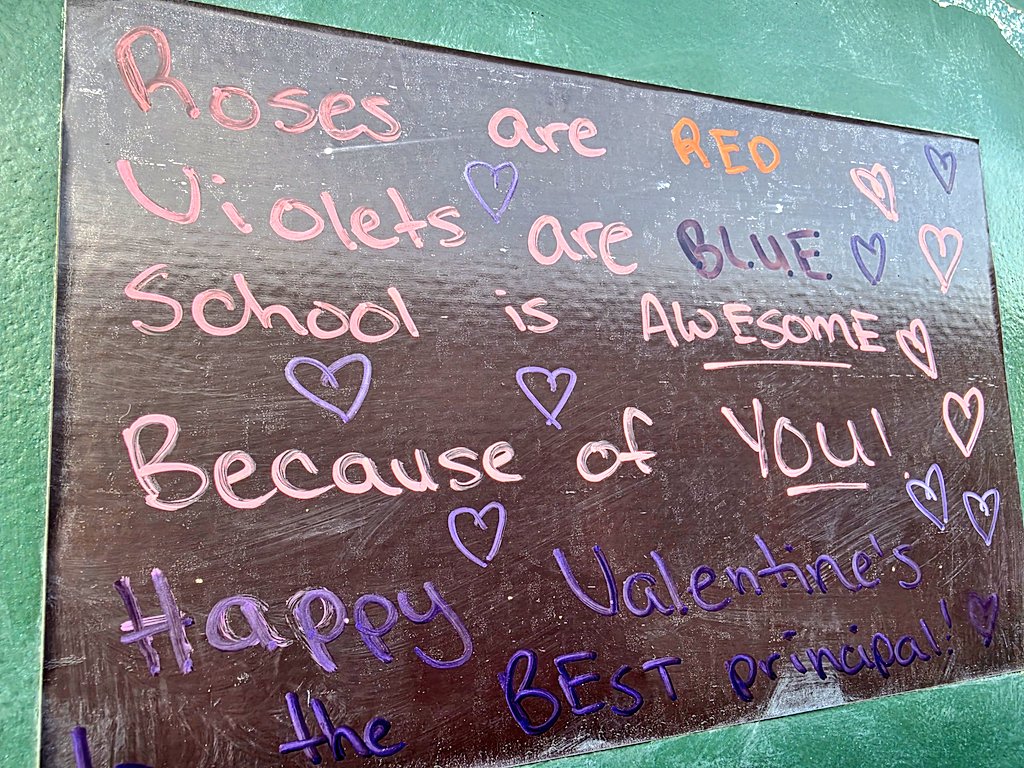 Roses are RED
Violets are B.L.U.E.
School is AWESOME
Because of YOU!
Happy Valentine's
to the BEST principal!